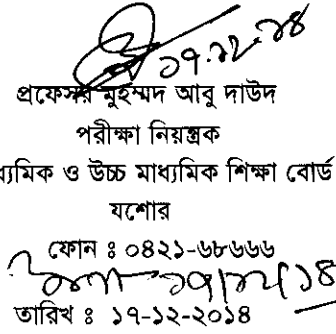 ১৭.১২.১৪
প্রফেসর মুহম্মদ আবু দাউদ
পরীক্ষা নিয়ন্ত্রক
ধ্যমিক ও উচ্চ মাধ্যমিক শিক্ষা বোর্ড
যশোর
ফোন ঃ ০৪২১-৬৮৬৬৬
১৭/১২/১৪
তারিখ ঃ ১৭-১২-২০১৪